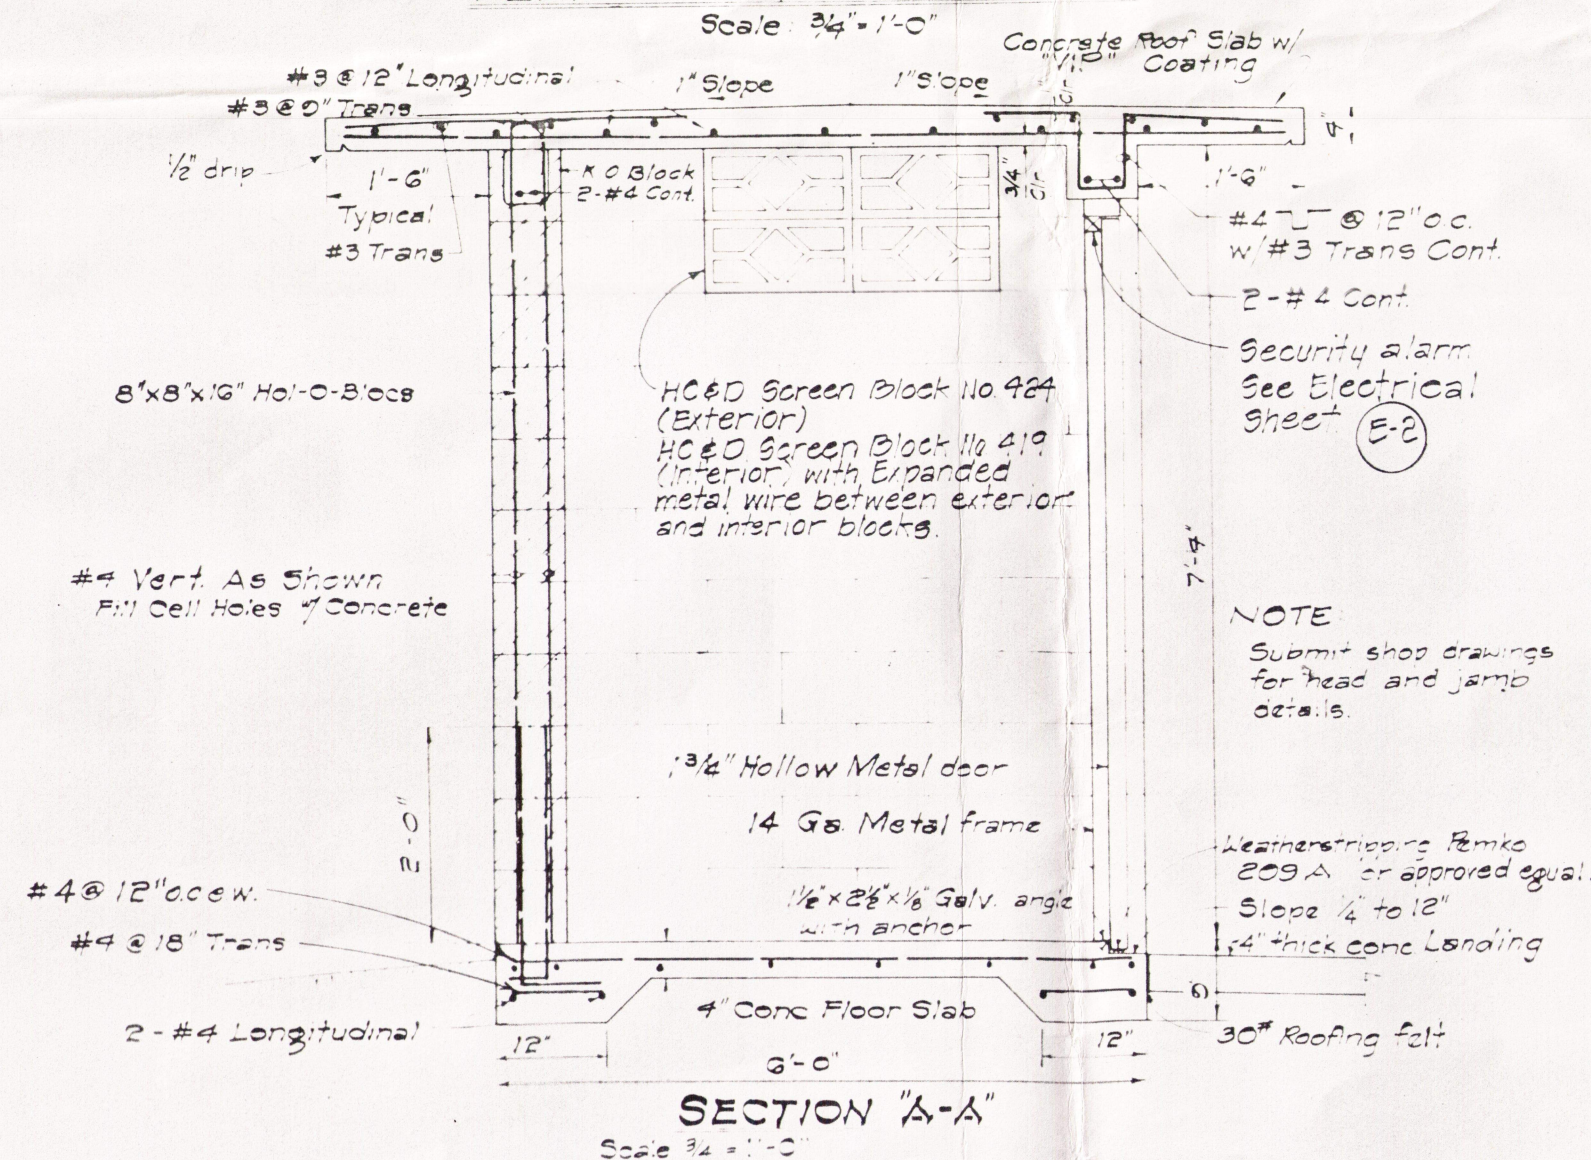 Scale: 3/4" = 1'-0"
Concrete Roof Slab w/
"VIP" Coating
#3 @ 12" Longitudinal
#3 @ 9" Trans
1" Slope
1" Slope
Clr
4"
1/2" drip
1'-6"
Typical
#3 Trans
K O Block
2-#4 Cont.
3/4"
Clr
1'-6"
#4 @ 12" o.c.
w/#3 Trans Cont.
2-#4 Cont.
Security alarm
See Electrical
Sheet E-2
8"x8"x16" Hol-O-Blocs
HC&D Screen Block No. 424
(Exterior)
HC&D Screen Block No 419
(Interior) with Expanded
metal wire between exterior
and interior blocks.
7'-4"
#4 Vert. As Shown
Fill Cell Holes w/ Concrete
NOTE:
Submit shop drawings
for head and jamb
details.
1 3/4" Hollow Metal door
2'-0"
14 Ga. Metal frame
Weatherstripping Pemko
209 A or approved equal.
#4 @ 12" o.c e w.
1 1/2" x 2 1/2" x 1/8" Galv. angle
with anchor
Slope 1/4" to 12"
4" thick conc Landing
#4 @ 18" Trans
4" Conc Floor Slab
2-#4 Longitudinal
30# Roofing felt
12"
12"
6'-0"
SECTION "A-A"
Scale 3/4 = 1'-0"